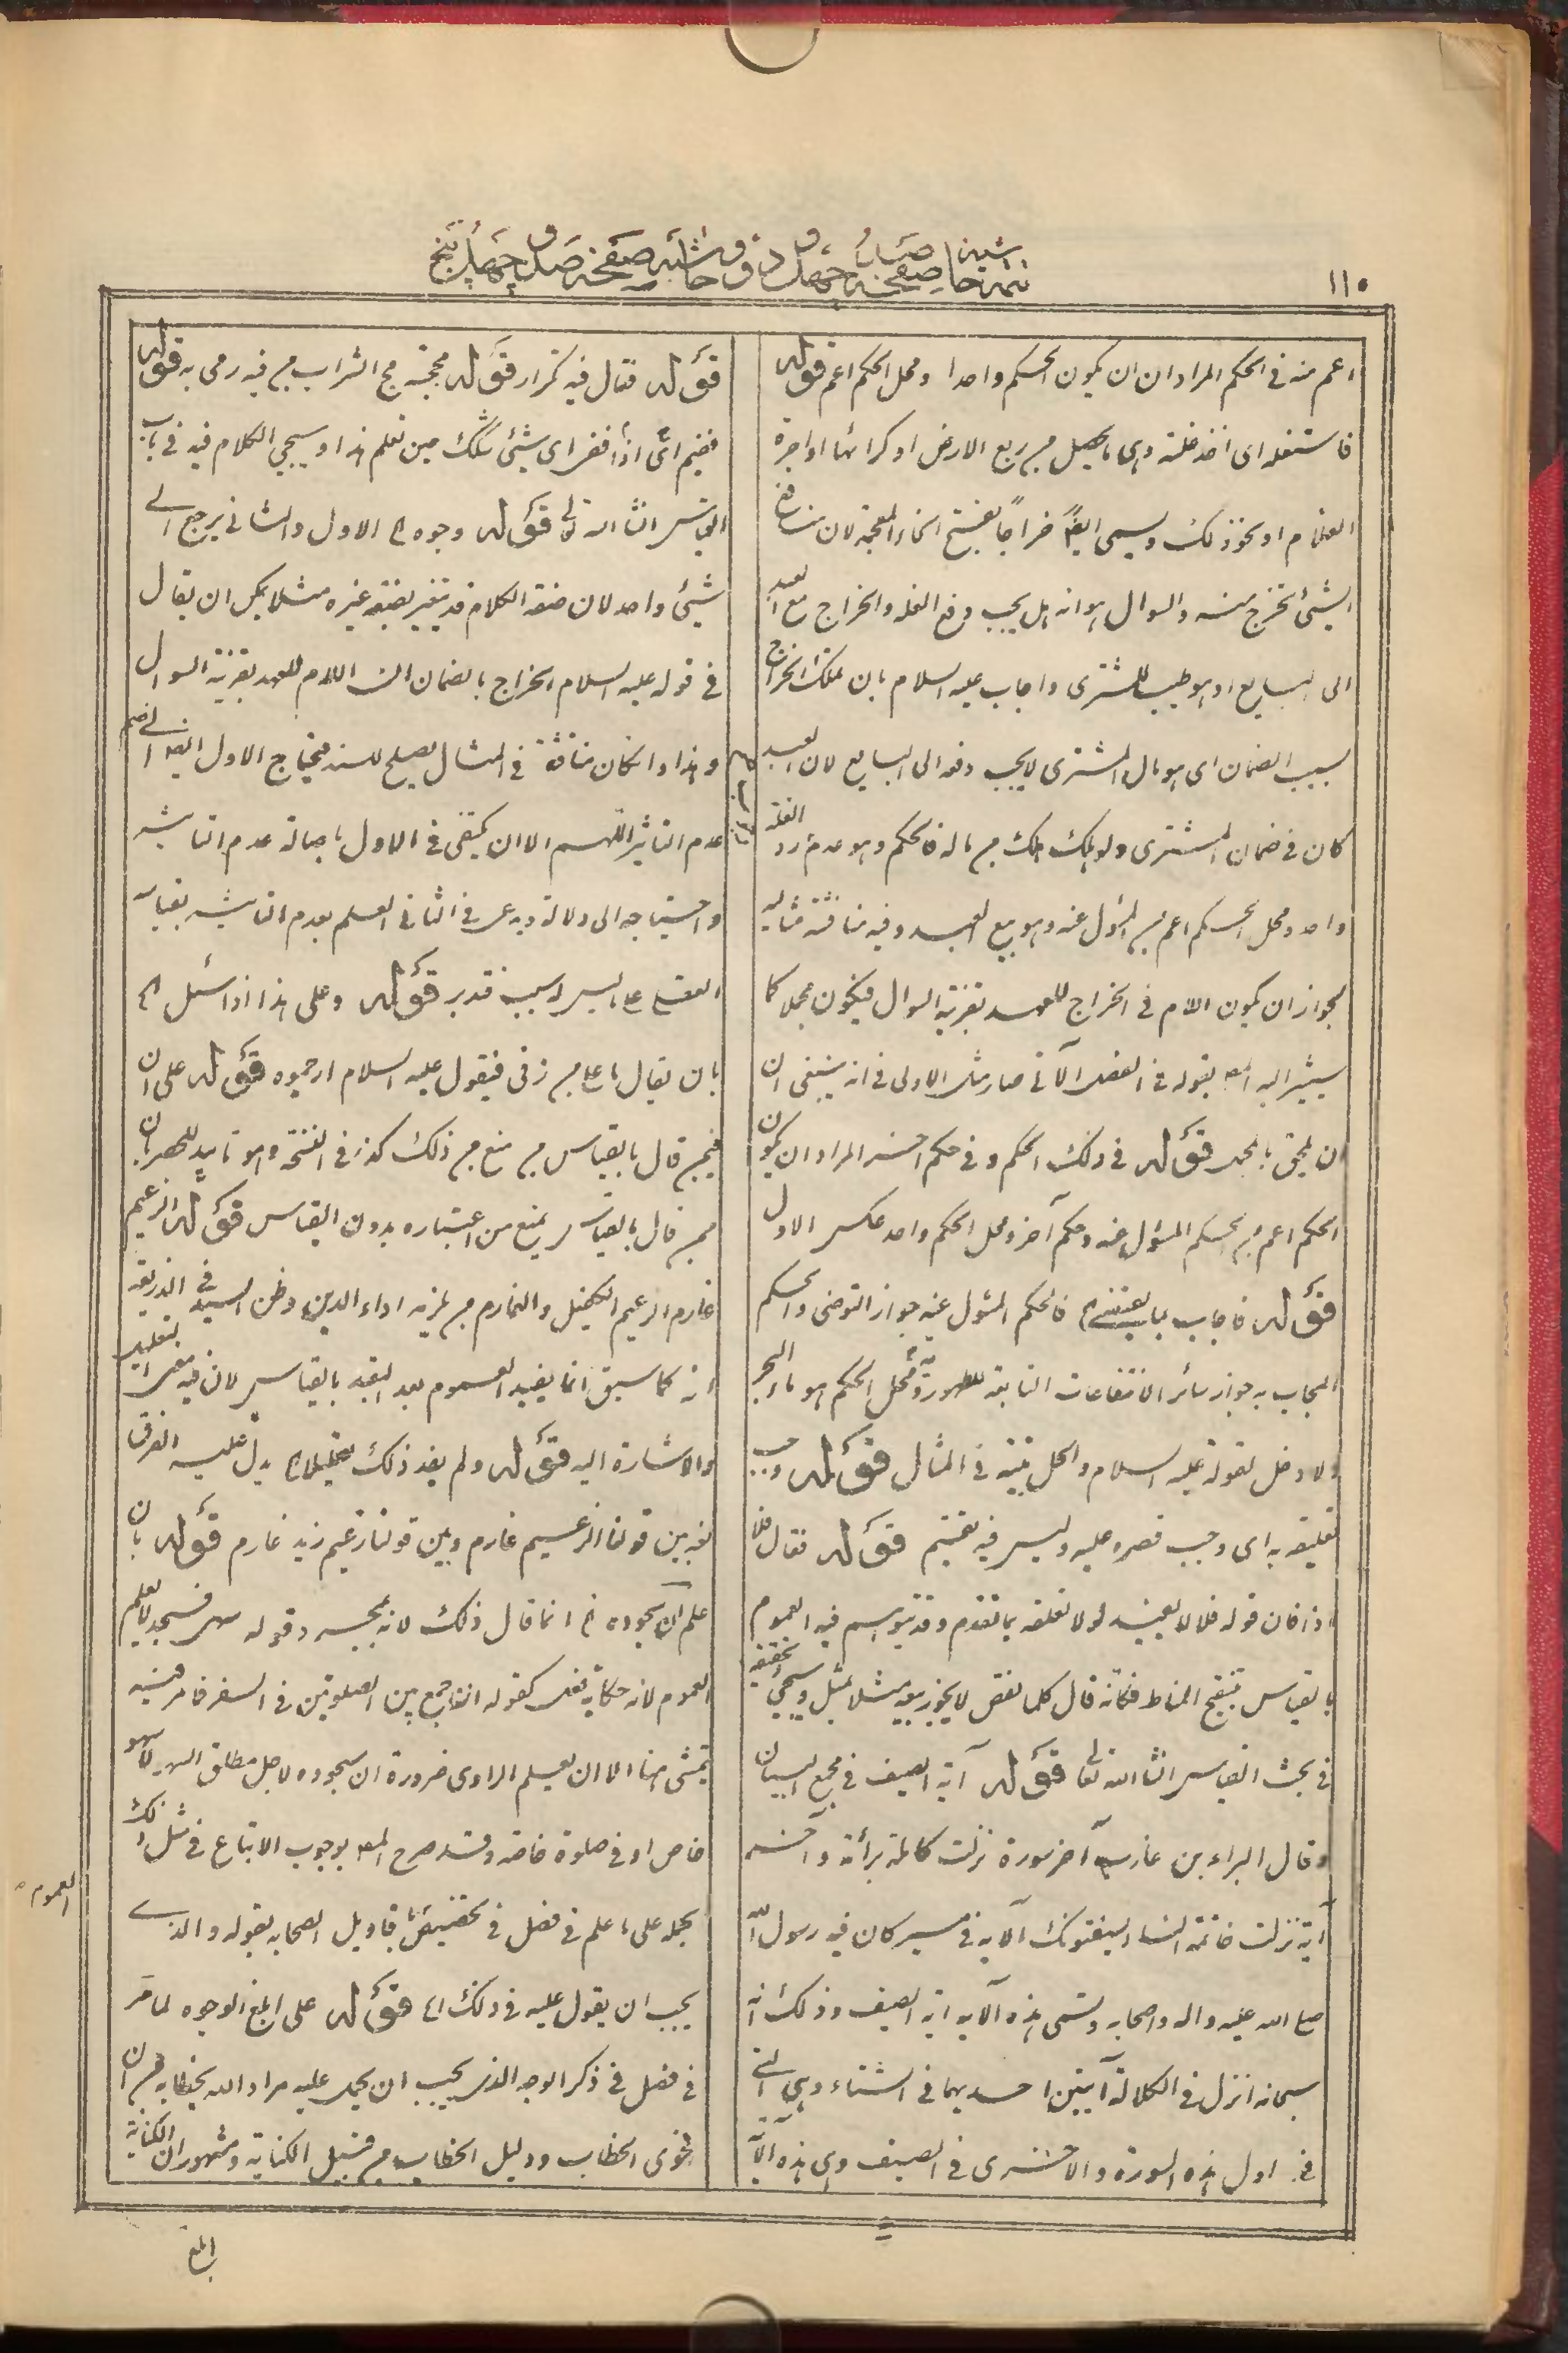 ١١٠
تتمه حاشيه صفحه صد و چهل و حاشيه صفحه صد و چهل و پنج
اعم منه فى الحكم المراد ان ان يكون الحكم واحدا ومحل الحكم اعم قوله
فاستغله اى اخذ غلته وهى ما يحصل من ريع الارض او كرائها او اجرة
الغلام او نحو ذلك ويسمى ايضا خراجا بفتح الخاء المعجمة لان منافع
الشئ تخرج منه والسوال هو انه هل يجب دفع الغلة والخراج مع العبد
الى البايع او هو طيب للمشترى واجاب عليه السلام بان تملك الخراج
بسبب الضمان اى هو مال المشترى لا يجب دفعه الى البايع لان العبد
كان فى ضمان المشترى ولو هلك هلك من ماله فالحكم وهو عدم رد الغلة
واحد ومحل الحكم اعم من المسؤل عنه وهو بيع العبد وفيه مناقشة مثاليه
لجواز ان يكون اللام فى الخراج للعهد بقرينة السوال فيكون مجملا كما
سيشير اليه المص بقوله فى الفصل الآتى صار مثل الاولى فى انه ينبغى ان
ان يلحق بالمجمل قوله فى ذلك الحكم وفى حكم اخر المراد ان يكون
الحكم اعم من الحكم المسؤل عنه وحكم آخر ومحل الحكم واحد عكس الاول
قوله فاجاب بما يقتضى الخ فالحكم المسئول عنه جواز التوضى والحكم
المجاب به جواز سائر الانتفاعات التابعة للطهورية ومحل الحكم هو ماء البحر
ولا دخل لقوله عليه السلام والحل ميتته فى المثال قوله وجب
تعليقه به اى وجب قصره عليه وليس فيه تعميم قوله فقال فلا
اذا فان قوله فلا لا يفيد لولا تعلقه بما تقدم وقد يتوسم فيه العموم
بالقياس بتنقيح المناط فكانه قال كلما نقص لا يجوز بيعه مثلا بمثل وسيجئ تحقيقه
فى بحث القياس انشاء الله تعالى قوله آية الصيف فى مجمع البيان
وقال البراء بن عازب آخر سورة نزلت كاملة برائة وآخر
آية نزلت خاتمة النساء يستفتونك الآية فى مسير كان فيه رسول الله
صلى الله عليه واله واصحابه وتسمى هذه الآية اية الصيف وذلك انه
سبحانه انزل فى الكلالة آيتين احديهما فى الشتاء وهى التى
فى اول هذه السورة والاخرى فى الصيف وهى هذه الآية
قوله فقال فيه تكرار قوله مججته مج الشراب من فيه رمى به قوله
ففيم اى اذا ففى اى شئ شكك حين تعلم هذا وسيجئ الكلام فيه فى باب
القياس انشاء الله تعالى قوله وجوه الخ الاول والثانى يرجع الى
شئ واحد لان صفة الكلام قد يتغير بصفة غيره مثلا يمكن ان يقال
فى قوله عليه السلام الخراج بالضمان ان اللام للعهد بقرينة السوال
وهذا وان كان مناقشة فى المثال يصلح للسند فيحتاج الاول ايضا الى ضم
عدم التاثير اللهم الا ان يكتفى فى الاول باصالة عدم التاثير
واحتياجه الى دلالة ويدعى فى الثانى العلم بعدم التاثير بقياس
العقل على ما ليس له سبب فتدبر قوله وعلى هذا اذا سئل الخ
بان يقال ما على من زنى فيقول عليه السلام ارجموه قوله على ان
فيمن قال بالقياس من منع من ذلك كذا فى النسخة وهو تاييد للحصر بان
من قال بالقياس يمنع من اعتباره بدون القياس قوله الزعيم
غارم الزعيم الكفيل والغارم من يلزمه اداء الدين وظن السيد فى الذريعة
انه كما سبق انما يفيد العموم بعد التعبد بالقياس لان فيه معنى التعليل
والاشارة اليه قوله ولم يفد ذلك تعليلا الخ يدل عليه الفرق
لغة بين قولنا الزعيم غارم وبين قولنا زعيم زيد غارم قوله بان
علم ان سجوده الخ انما قال ذلك لان بمجرد قوله سهى فسجد لا يعلم
العموم لانه حكاية فعل كقوله انه جمع بين الصلوتين فى السفر فما مر فيه
يتمشى هنا الا ان يعلم الراوى ضرورة ان سجوده لاجل مطلق السهو لا سهو
خاص او فى صلوة خاصة وقد صرح المص بوجوب الاتباع فى مثل ذلك
يحمله على ما علم فى فصل فى تحقيق ما يقاويل الصحابه بقوله والذى
يجب ان يقول عليه فى ذلك الخ قوله على ابلغ الوجوه لما مر
فى فصل فى ذكر الوجه الذى يجب ان يحمل عليه مراد الله بخطابه من ان
فحوى الخطاب ودليل الخطاب من قبيل الكناية ومشهور ان الكناية
العموم
ابلغ